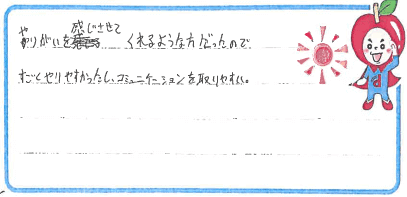 やりがいを感じさせてくれるような方だったので
すごくやりやすかったし、コミュニケーションを取りやすい。